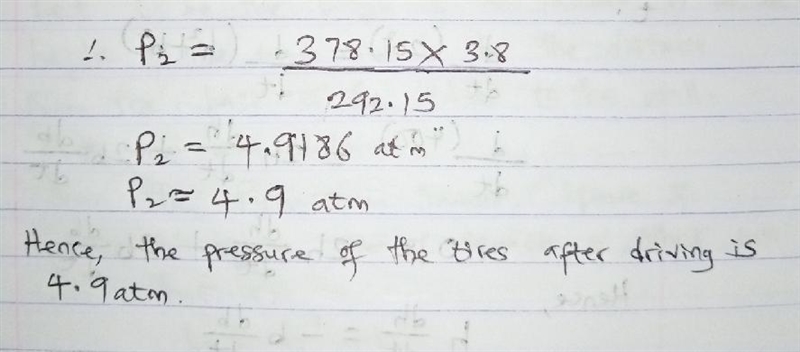 ∴ P₂ = 378.15 × 3.8
292.15
P₂ = 4.9186 atm
P₂ ≈ 4.9 atm
Hence, the pressure of the tires after driving is
4.9 atm.